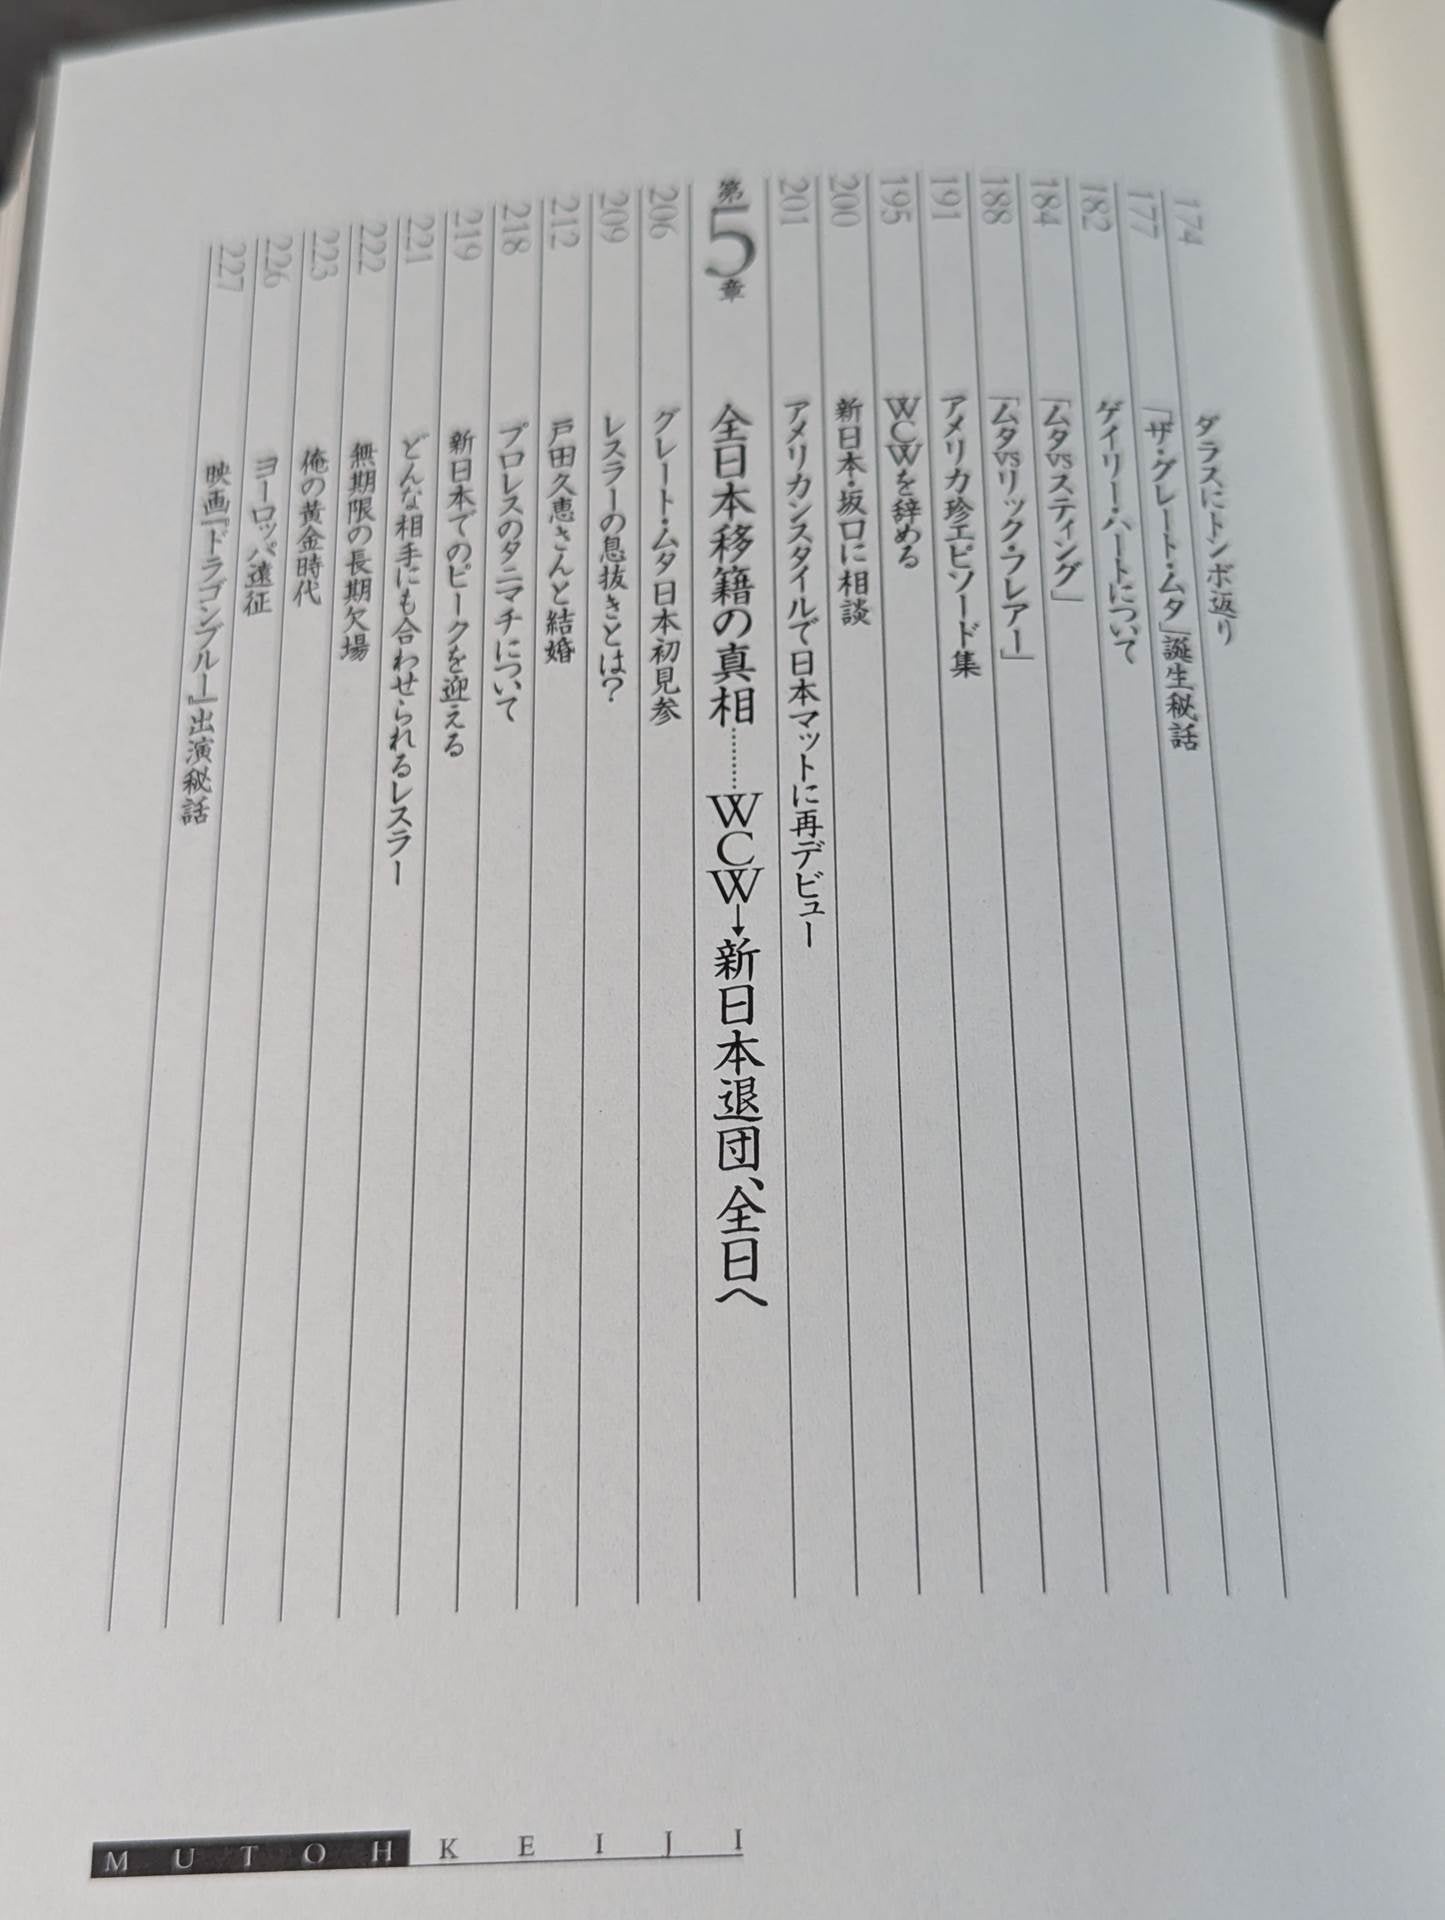 174 ダラスにトンボ返り
177 「ザ・グレート・ムタ」誕生秘話
182 ゲイリー・ハートについて
184 「ムタVSスティング」
188 「ムタVSリック・フレアー」
191 アメリカ珍エピソード集
195 WCWを辞める
200 新日本・坂口に相談
201 アメリカンスタイルで日本マットに再デビュー
第5章 全日本移籍の真相……WCW→新日本退団、全日へ
206 グレート・ムタ日本初見参
209 レスラーの息抜きとは？
212 戸田久恵さんと結婚
218 プロレスのタニマチについて
219 新日本でのピークを迎える
221 どんな相手にも合わせられるレスラー
222 無期限の長期欠場
223 俺の黄金時代
226 ヨーロッパ遠征
227 映画『ドラゴンブルー』出演秘話
MUTOH KEIJI